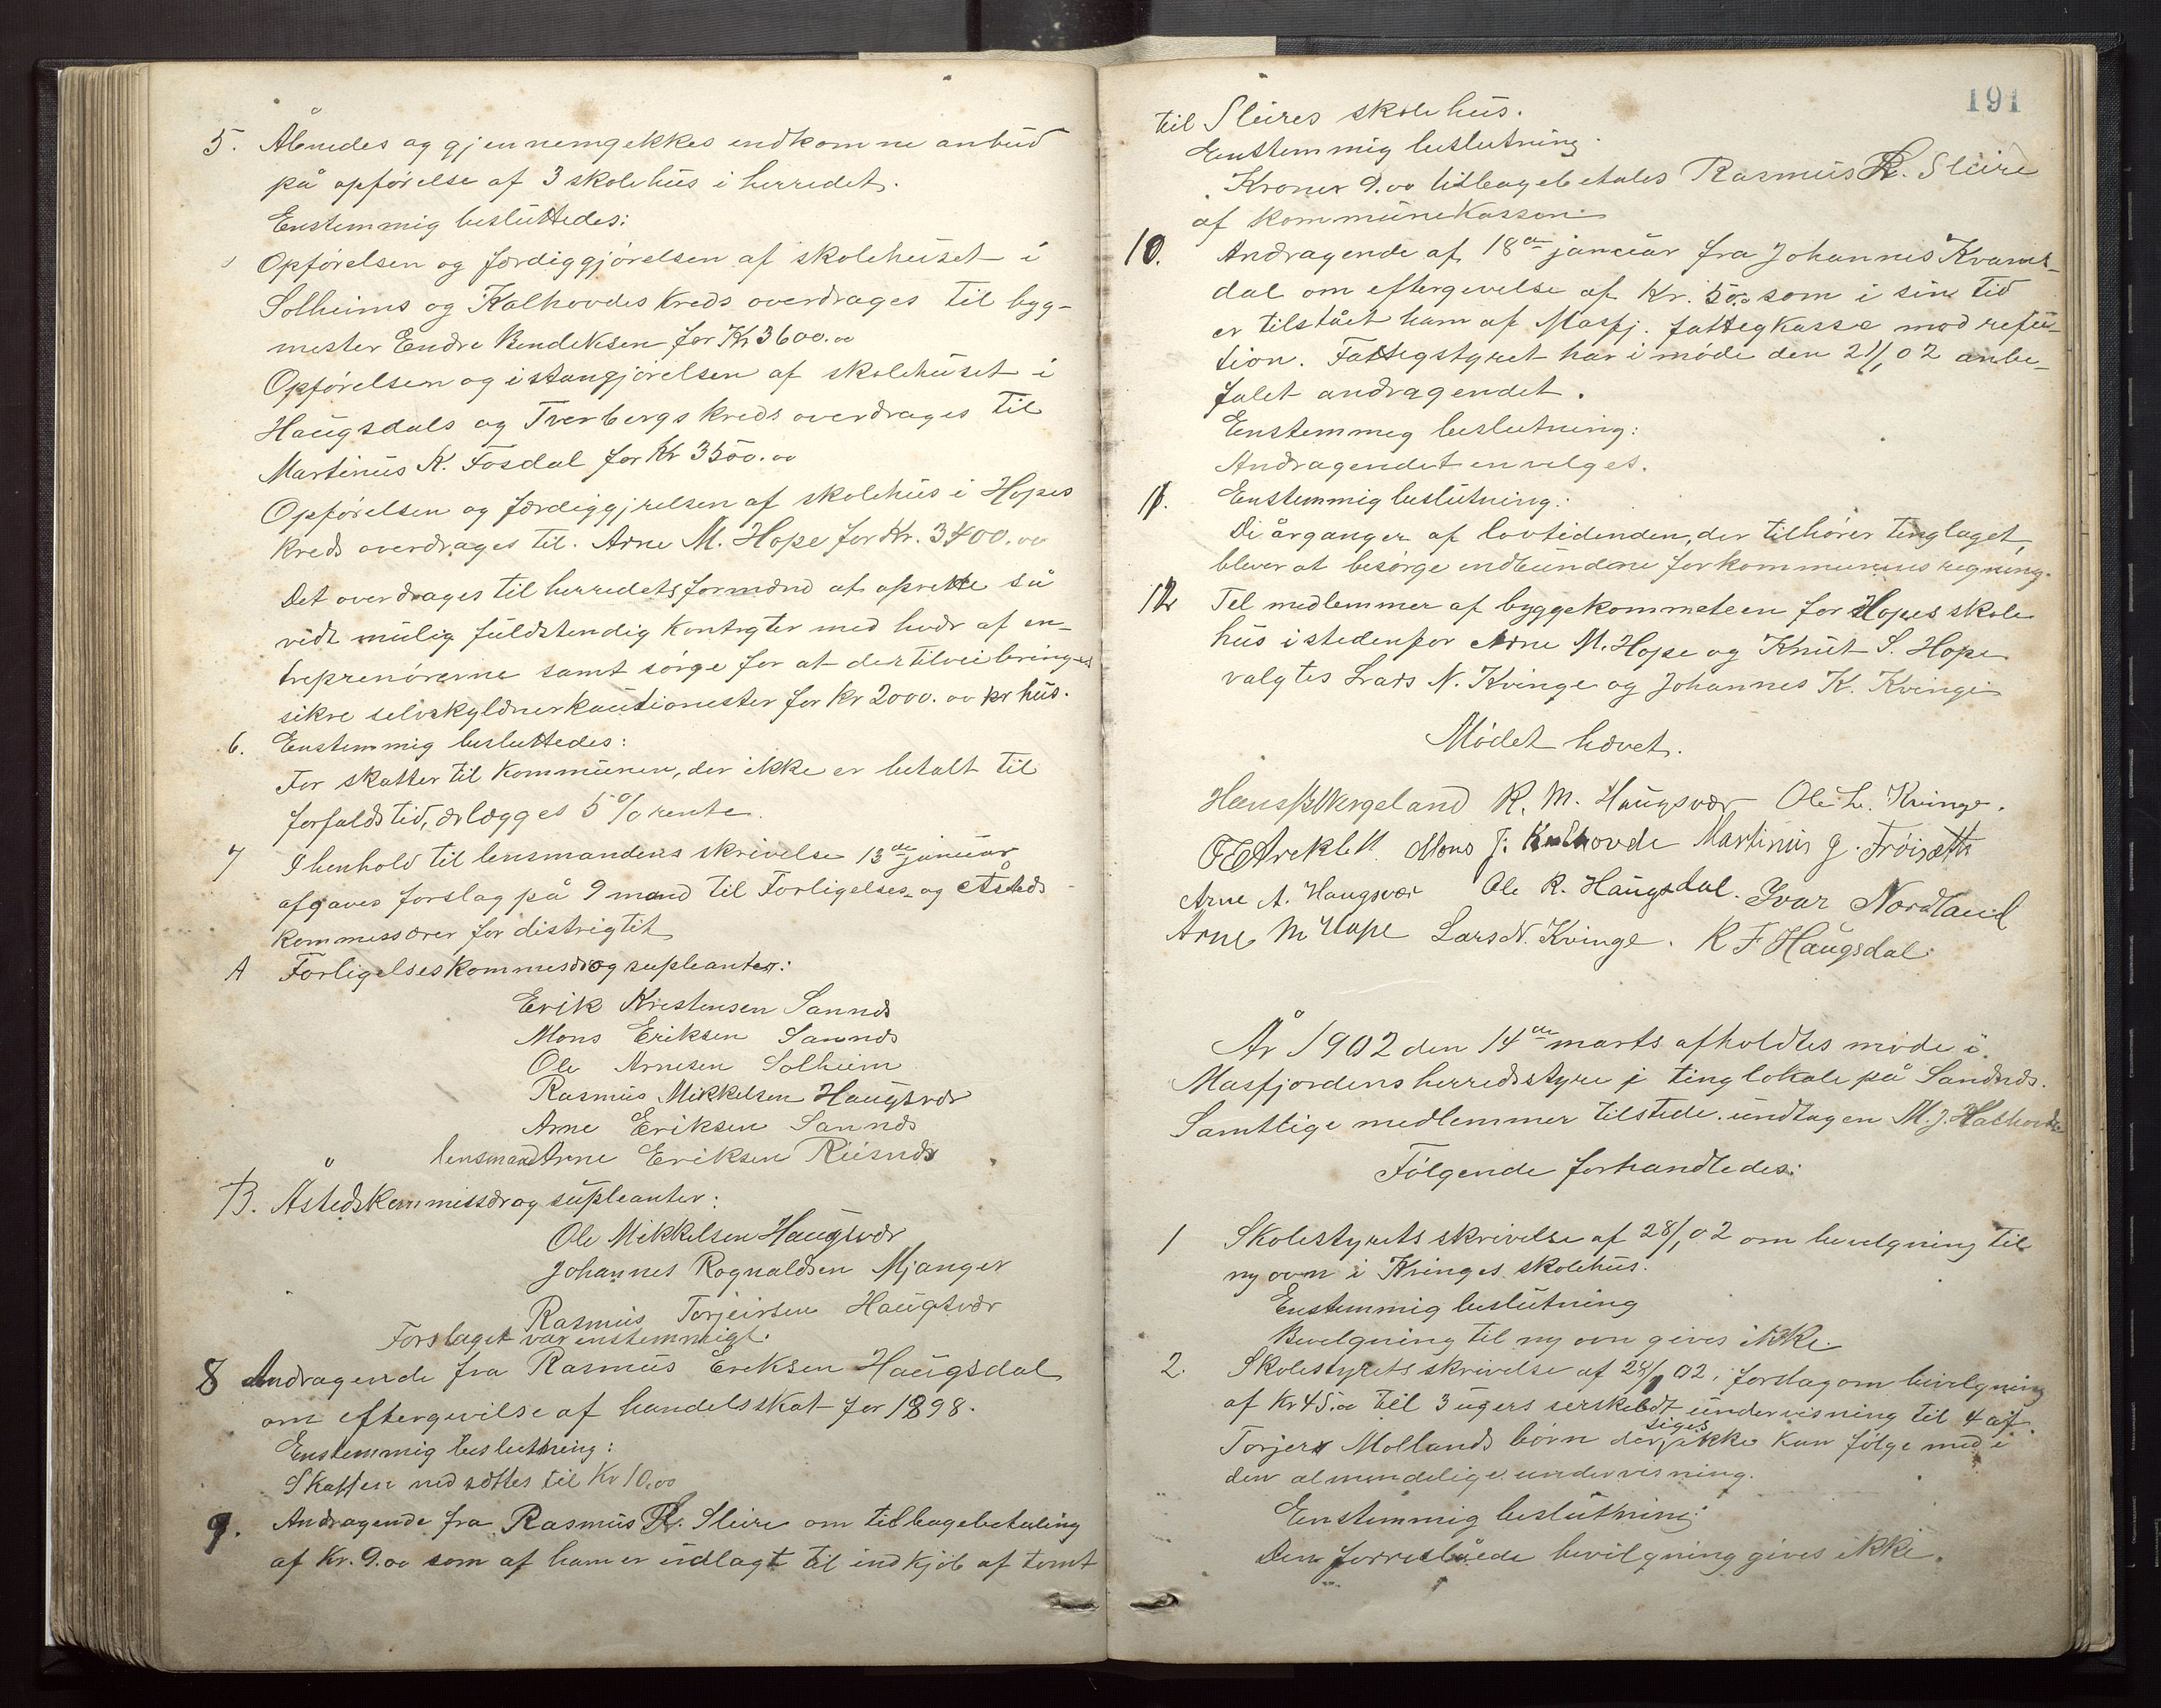 5. Åbnedes og gjennemgekkes endkomne anbud
på opførelse af 3 skolehus i herredet.
Enstemmig besluttedes:
Opførelsen og færdiggjørelsen af skolehuset i
Solheims og Kalhovdes kreds overdrages til byg-
mester Endre Bendeksen for Kr 3600.00
Opførelsen og istangjørelsen af skolehuset i
Haugsdals og Tverbergs kreds overdrages til
Martinus K. Fosdal for Kr 3500.00
Opførelsen og færdiggjrelsen af skolehus i Hopes
kreds overdrages til. Arne M. Hope for Kr. 3400.00
Det overdrages til herredets formænd at oprette så
vidt mulig fuldstendig kontrgter med hvær af en-
treprenørerne samt sørge for at der tilveibringes
sikre selvskyldnerkautionester for kr 2000.00 pr hus.
6. Enstemmig besluttedes:
For skatter til kommunen, der ikke er betalt til
forfaldstid, ærlægges 5% rente.
7 I henhold til lensmandens skrivelse 13de januar
afgaves forslag på 9 mænd til Forligelses- og Åsteds-
kommessærer for distrigtet
A Forligelseskommesær og supleanter:
Erik Kristensen Sannæs
Mons Eriksen Sannæs
Ole Arnesen Solheim
Rasmus Mikkelsen Haugsvær
Arne Eriksen Sannæs
lensmand Arne Eriksen Riisnæs
B. Åstedskommissær og supleanter:
Ole Mikkelsen Haugsvær
Johannes Rognaldsen Mjanger
Rasmus Torjeirsen Haugsvær
Forslaget var enstemmigt.
8 Andragende fra Rasmus Ereksen Haugsdal
om eftergivelse af handelsskat for 1898.
Enstemmig beslutning:
Skatten nedsættes til Kr 10.00
9. Andragende fra Rasmus R. Sleire om tilbagebetaling
af Kr. 9.00 som af ham er udlagt til indkjøb af tomt
191
til Sleires skolehus.
Enstemmig beslutning.
Kroner 9.00 tilbagebetales Rasmus R. Sleire
af kommunekassen.
10. Andragende af 18de januar fra Johannes Kvams-
dal om eftergevelse af Kr. 50.00 som i sin tid
er tilstået ham af Masfj. fattegkasse mod refu-
tion. Fattegstyret har i møde den 21/1 02 anbe-
falet andragendet.
Enstemmeg beslutning:
Andragendet envelges.
11. Enstemmig beslutning:
De årganger af lovtidenden, der tilhører tinglaget,
blever at besørge endbundne for kommunens regning.
12 Tel medlemmer af byggekommeteen for Hopes skole
hus istedenfor Arne M. Hope og Knut S. Hope
valgtes Lars N. Kvinge og Johannes K. Kvinge
Mødet hævet.
Hans P Wergeland R. M. Haugsvær Ole L. Kvinge.
Mons J. Kalhovde Martinus J. Frøisæth
Arne A. Haugsvær Ole R. Haugsdal. Ivar Nordland
Arne M Hope Lars N. Kvinge. R F Haugsdal
År 1902 den 14de marts afholdtes møde i
Masfjordens herredsstyre i tinglokale på Sandnæs.
Samtlige medlemmer tilstede undtagen M. J. Kalhovde
Følgende forhandledes:
1 Skolestyrets skrivelse af 28/1 02 om bevelgning til
ny ovn i Kvinges skolehus.
Enstemmig beslutning
Bevelgning til ny ovn gives ikke.
2. Skolestyrets skrivelse af 28/1 02, forslag om bevelgning
af Kr 45.00 till 3 ugers serskeldt undervisning til 4 af
Torjer Mollands børn der siges ikke kan følge med i
den almendelige undervisning.
Enstemmig beslutning:
Den forreslåede bevilgning gives ikke.